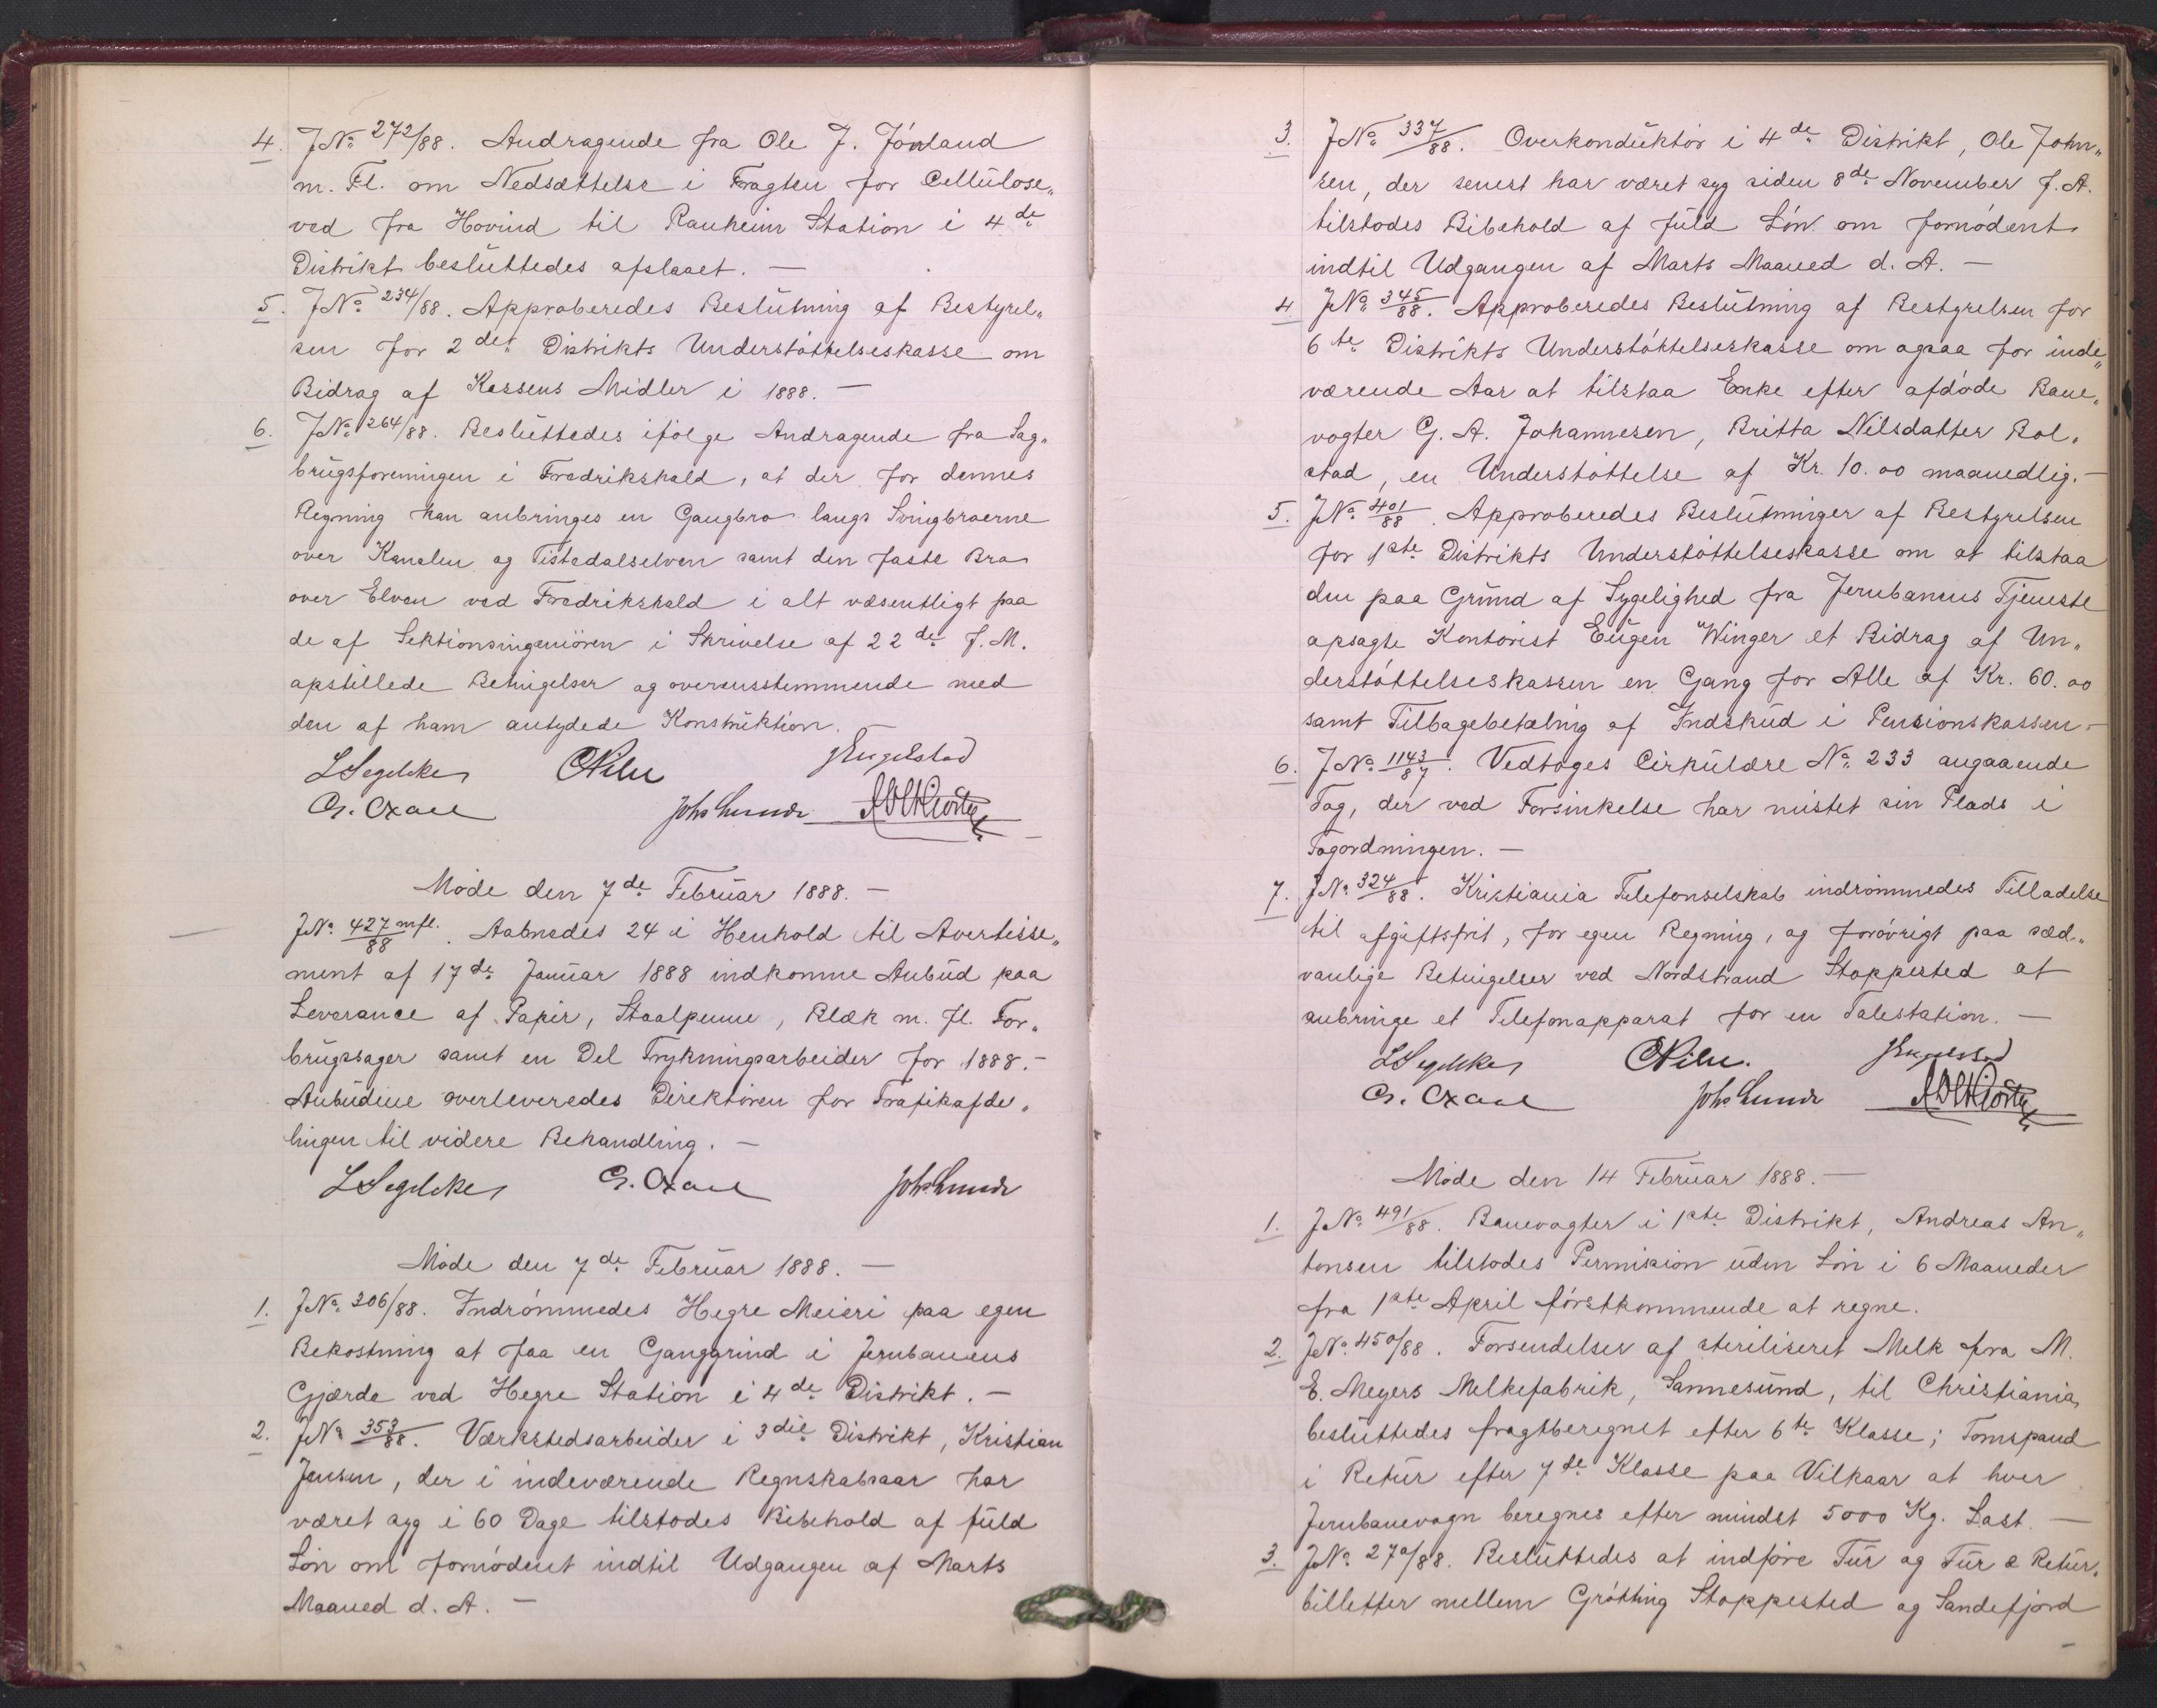 4. JNo. 272/88. Andragende fra Ole J. Jönland
m. Fl. om Nedsættelse i Fragten for Cellulose„
ved fra Hovind til Ranheim Station i 4de
Distrikt besluttedes afslaaet. —
5. JNo. 234/88. Approberedes Beslutning af Bestyrel„
sen for 2det Distrikts Understøttelseskasse om
Bidrag af Kassens Midler i 1888. —
6. JNo. 264/88. Besluttedes ifølge Andragende fra Sag„
brugsforeningen i Fredrikshald, at der for dennes
Regning kan anbringes en Gangbro langs Svingbroerne
over Kanalen og Tistedalselven samt den faste Bro
over Elven ved Fredrikshald i alt væsentligt paa
de af Sektionsingeniören i Skrivelse af 22de f. M.
opstillede Betingelser og overensstemmende med
den af ham antydede Konstruktion. —
LSegelcke CPihl JEngelstad
Cr. Oxaal Johs Lunde
Møde den 7de Februar 1888. —
JNo. 427/88 mfl. Aabnedes 24 i Henhold til Avertisse„
ment af 17de Januar 1888 indkomne Anbud paa
Leverance af Papir, Staalpenne, Blæk m. fl. For„
brugssager samt en Del Trykningsarbeider for 1888. —
Anbudene overleveredes Direktøren for Trafikafde„
lingen til videre Behandling. —
LSegelcke Cr. Oxaal Johs Lunde
Møde den 7de Februar 1888. —
1. JNo. 306/88. Indrømmedes Hegre Meieri paa egen
Bekostning at faa en Ganggrind i Jernbanens
Gjærde ved Hegre Station i 4de Distrikt. —
2. JNo. 353/88. Værkstedsarbeider i 3die Distrikt, Kristian
Jensen, der i indeværende Regnskabsaar har
været syg i 60 Dage tilstodes Bibehold af fuld
Løn om fornødent indtil Udgangen af Marts
Maaned d. A. —
3. JNo. 337/88. Overkonduktør i 4de Distrikt, Ole John„
sen, der senest har været syg siden 8de November f. A.
tilstodes Bibehold af fuld Løn om fornødent
indtil Udgangen af Marts Maaned d. A. —
4. JNo. 345/88. Approberedes Beslutning af Bestyrelsen for
6te Distrikts Understøttelseskasse om ogsaa for inde„
værende Aar at tilstaa Enke efter afdøde Bane„
vogter G. A. Johannesen, Britta Nilsdatter Bol„
stad, en Understøttelse af Kr. 10.00 maanedlig. —
5. JNo. 401/88. Approberedes Beslutninger af Bestyrelsen
for 1ste Distrikts Understøttelseskasse om at tilstaa
den paa Grund af Sygelighed fra Jernbanens Tjeneste
opsagte Kontorist Eugen Winger et Bidrag af Un„
derstøttelseskassen en Gang for Alle af Kr. 60.00
samt Tilbagebetaling af Indskud i Pensionskassen. —
6. JNo. 1143/87. Vedtoges Cirkulære No. 233 angaaende
Tog, der ved Forsinkelse har mistet sin Plads i
Togordningen. —
7. JNo. 324/88. Kristiania Telefonselskab indrømmedes Tilladelse
til afgiftsfrit, for egen Regning, og forøvrigt paa sæd„
vanlige Betingelser ved Nordstrand Stoppested at
anbringe et Telefonapparat for en Talestation. —
LSegelcke CPihl. JEngelstad
Cr. Oxaal Johs Lunde
Møde den 14 Februar 1888. —
1. JNo. 491/88. Banevogter i 1ste Distrikt, Andreas An„
tonsen tilstodes Permission uden Løn i 6 Maaneder
fra 1ste April førstkommende at regne.
2. JNo. 450/88. Forsendelser af steriliseret Melk fra M.
E. Meyers Melkefabrik, Sannesund, til Christiania
besluttedes fragtberegnet efter 6te Klasse; Tomgods
i Retur efter 7de Klasse paa Vilkaar at hver
Jernbanevogn beregnes efter mindst 5000 Kg. Last. —
3. JNo. 270/88. Besluttedes at indføre Tur og Tur & Retur„
billetter mellem Grötting Stoppested og Sandefjord